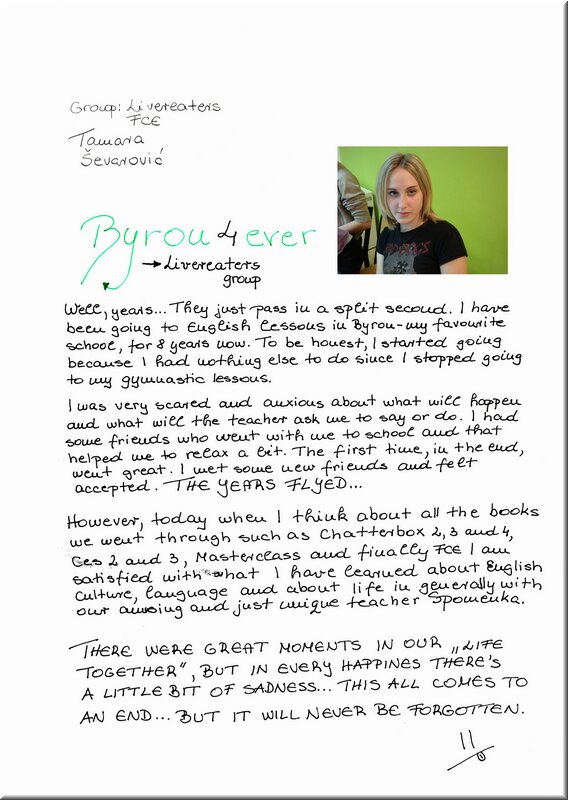 Group: Livereaters
FCE
Tamara
Ševarović
Byron 4 ever
→ Livereaters
group
Well, years... They just pass in a split second. I have
been going to English lessons in Byron-my favourite
school, for 8 years now. To be honest, I started going
because I had nothing else to do since I stopped going
to my gymnastic lessons.
I was very scared and anxious about what will happen
and what will the teacher ask me to say or do. I had
some friends who went with me to school and that
helped me to relax a bit. The first time, in the end,
went great. I met some new friends and felt
accepted. THE YEARS FLYED...
However, today when I think about all the books
we went through such as Chatterbox 2, 3 and 4,
2 and 3, Masterclass and finally FCE I am
satisfied with what I have learned about English
culture, language and about life in generally with
our and just unique teacher Spomenka.
THERE WERE GREAT MOMENTS IN OUR „LIFE
TOGETHER", BUT IN EVERY HAPPINES THERE'S
A LITTLE BIT OF SADNESS... THIS ALL COMES TO
AN END... BUT IT WILL NEVER BE FORGOTTEN.